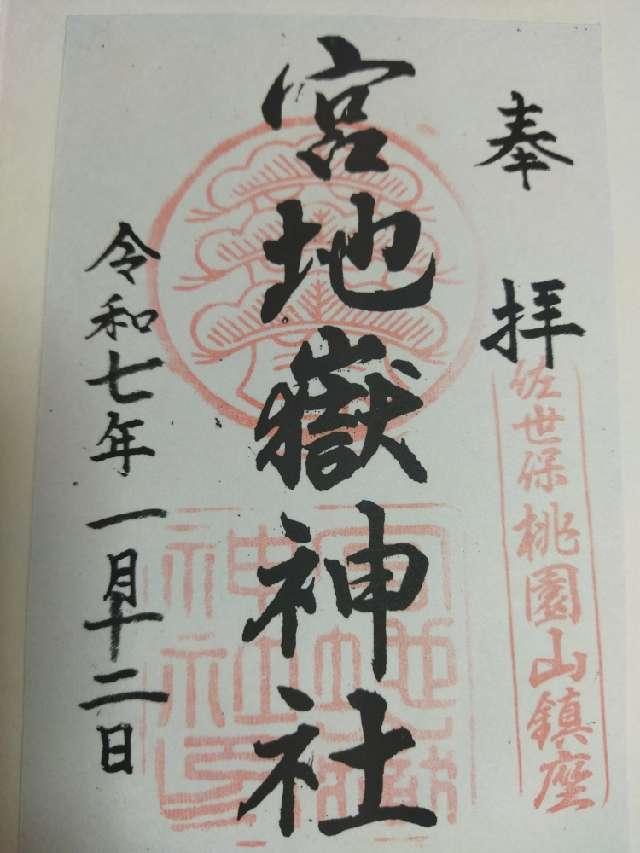 奉拝
佐世保桃園山鎮座
宮地嶽神社
令和七年一月十二日